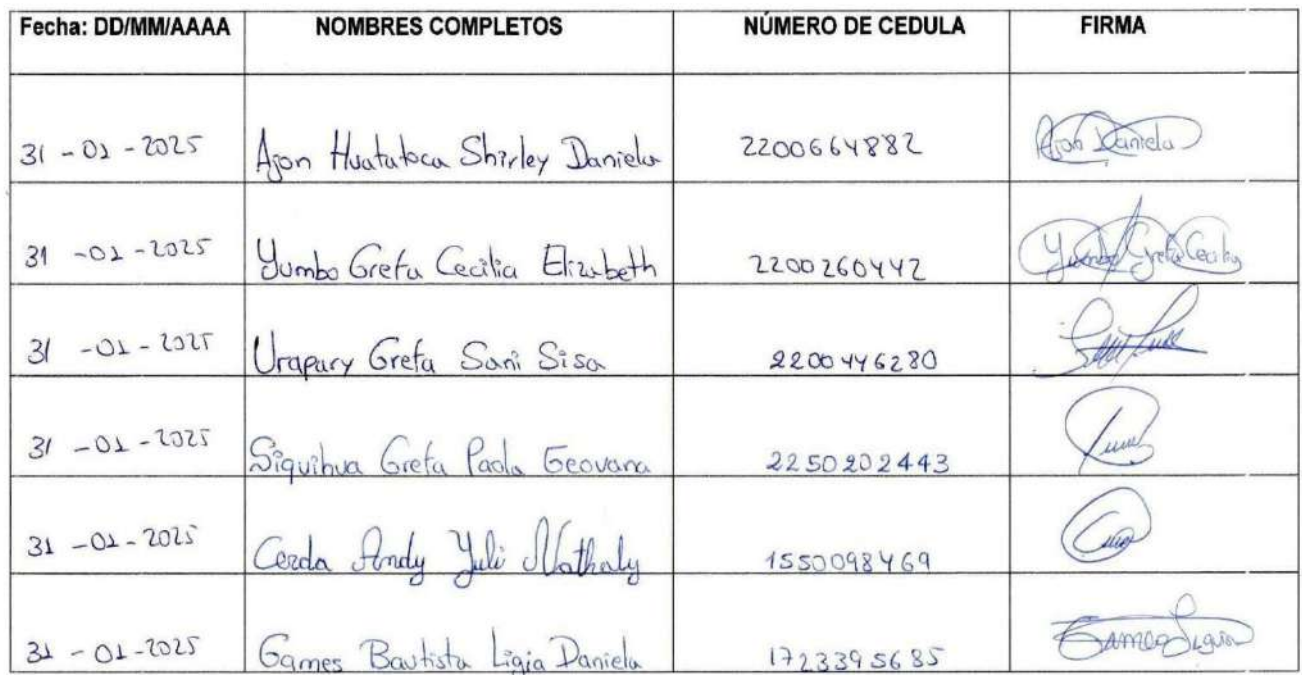 Fecha: DD/MM/AAAA NOMBRES COMPLETOS NÚMERO DE CEDULA FIRMA
31 - 01 - 2025 Ajon Huatatoca Shirley Daniela 2200664882 Ajon Daniela
31 - 01 - 2025 Yumbo Grefa Cecilia Elizabeth 2200260442 Yumbo Grefa Cecilia
31 - 01 - 2025 Urapary Grefa Sani Sisa 2200446280
31 - 01 - 2025 Siquihua Grefa Paola Geovana 2250202443
31 - 01 - 2025 Cerda Andy Yuli Nathaly 1550098469
31 - 01 - 2025 Games Bautista Ligia Daniela 1723395685 Games Ligia